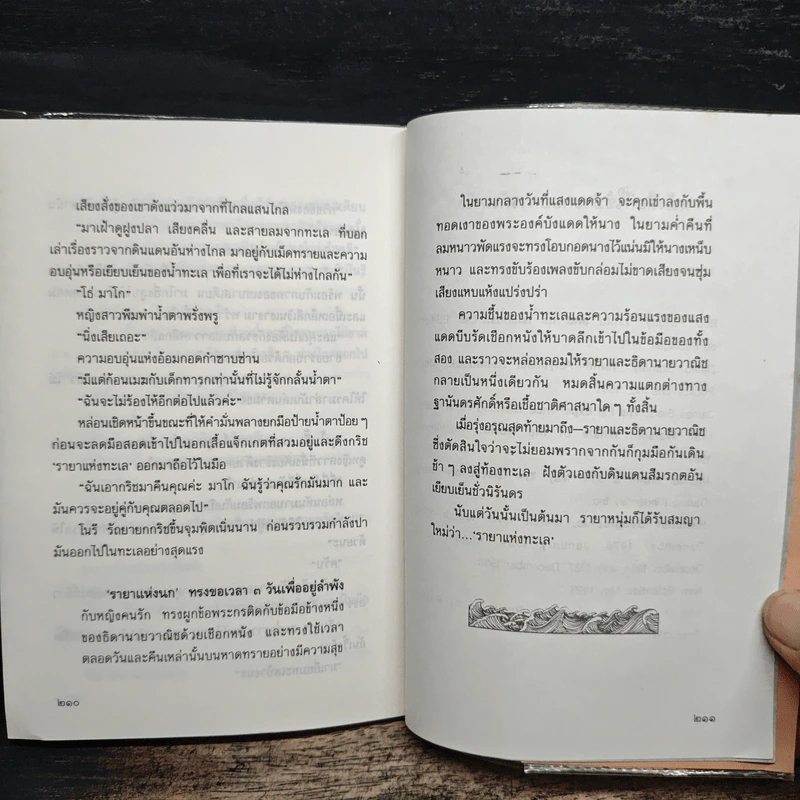 เสียงสั่งของเขาดังแว่วมาจากที่ไกลแสนไกล
“มาเฝ้าดูฝูงปลา เสียงคลื่น และสายลมจากทะเล ที่บอก
เล่าเรื่องราวจากดินแดนอันห่างไกล มาอยู่กับเม็ดทรายและความ
อบอุ่นหรือเยียบเย็นของน้ำทะเล เพื่อที่เราจะได้ไม่ห่างไกลกัน”
“โธ่ มาโก”
หญิงสาวพึมพำน้ำตาพรั่งพรู
“นิ่งเสียเถอะ”
ความอบอุ่นแห่งอ้อมกอดกำซาบซ่าน
“มีแต่ก้อนเมฆกับเด็กทารกเท่านั้นที่ไม่รู้จักกลั้นน้ำตา”
“ฉันจะไม่ร้องไห้อีกต่อไปแล้วค่ะ”
หล่อนเชิดหน้าขึ้นขณะที่ให้คำมั่นพลางยกมือป้ายน้ำตาป้อยๆ
ก่อนจะลดมือสอดเข้าไปในอกเสื้อแจ็กเกตที่สวมอยู่และดึงกริช
‘รายาแห่งทะเล’ ออกมาถือไว้ในมือ
“ฉันเอากริชมาคืนคุณค่ะ มาโก ฉันรู้ว่าคุณรักมันมาก และ
มันควรจะอยู่คู่กับคุณตลอดไป”
โนรี รัถยายกกริชขึ้นจุมพิตเนิ่นนาน ก่อนรวบรวมกำลังปา
มันออกไปในทะเลอย่างสุดแรง
‘รายาแห่งนก’ ทรงขอเวลา ๓ วันเพื่ออยู่ลำพัง
กับหญิงคนรัก ทรงผูกข้อพระกรติดกับข้อมือข้างหนึ่ง
ของธิดานายวาณิชด้วยเชือกหนัง และทรงใช้เวลา
ตลอดวันและคืนเหล่านั้นบนหาดทรายอย่างมีความสุข
๒๑๐
ในยามกลางวันที่แสงแดดจ้า จะคุกเข่าลงกับพื้น
ทอดเงาของพระองค์บังแดดให้นาง ในยามค่ำคืนที่
ลมหนาวพัดแรงจะทรงโอบกอดนางไว้แน่นมิให้นางเหน็บ
หนาว และทรงขับร้องเพลงขับกล่อมไม่ขาดเสียงจนซุ่ม
เสียงแหบแห้งแปร่งปร่า
ความชื้นของน้ำทะเลและความร้อนแรงของแสง
แดดบีบรัดเชือกหนังให้บาดลึกเข้าไปในข้อมือของทั้ง
สอง และราวจะหล่อหลอมให้รายาและธิดานายวาณิช
กลายเป็นหนึ่งเดียวกัน หมดสิ้นความแตกต่างทาง
ฐานันดรศักดิ์หรือเชื้อชาติศาสนาใดๆ ทั้งสิ้น
เมื่อรุ่งอรุณสุดท้ายมาถึง—รายาและธิดานายวาณิช
ซึ่งตัดสินใจว่าจะไม่ยอมพรากจากกันก็กุมมือกันเดิน
ช้าๆ ลงสู่ท้องทะเล ฝังตัวเองกับดินแดนสีมรกตอัน
เยียบเย็นชั่วนิรันดร
นับแต่วันนั้นเป็นต้นมา รายาหนุ่มก็ได้รับสมญา
ใหม่ว่า...‘รายาแห่งทะเล’
๒๑๑